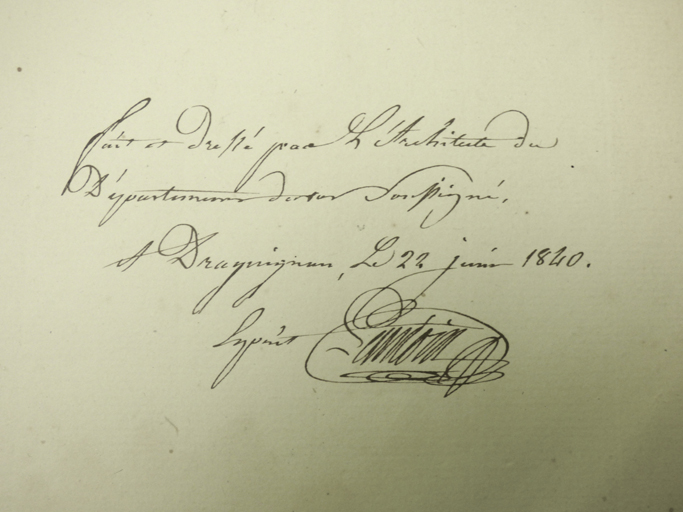 Fait et dressé par L'Architecte du
Département du var soussigné,
A Draguignan, Le 22 juin 1840.
Signé